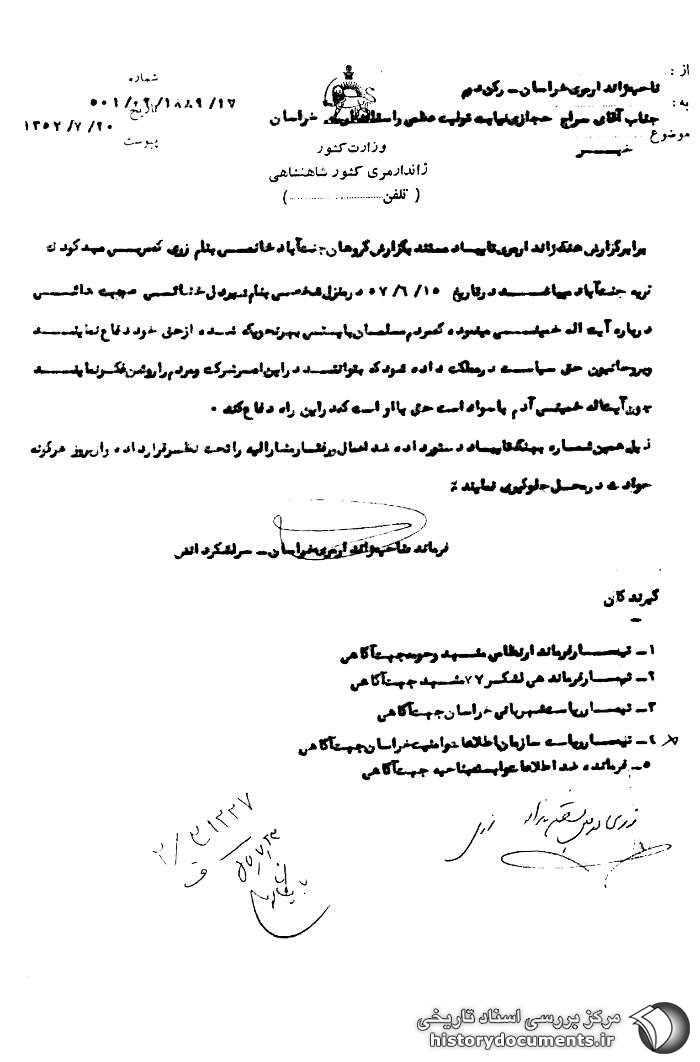 از :
ناحیه ژاندارمری خراسان – رکن دوم
به :
جناب آقای سراج حجازی نیابت تولیت عظمی و استاندار خراسان
موضوع
خبر
شماره
۵۰۱/۰۲/۱۸۸۹/۱۷
تاریخ
۱۳۵۷/۷/۲۰
پیوست
وزارت کشور
ژاندارمری کشور شاهنشاهی
( تلفن .................... )
برابر گزارش هنگ ژاندارمری تایباد مستند بگزارش گروهان جنت‌آباد خانمی بنام زری که مربی مهد کودک
قریه جنت‌آباد میباشد در تاریخ ۵۷/۶/۱۵ در منزل شخصی بنام شیردل خدائی صحبت هائی
درباره آیت اله خمینی مینموده که مردم مسلمان بایستی بهر تحویکه شده از حق خود دفاع نمایند
و بروحانیون حق سیاست در مملکت داده شود که بتوانند در این امر شرکت و مردم را روشن فکر نمایند
چون آیت‌اله خمینی آدم باسواد است حق با او است که در این راه دفاع کند .
ذیل همین شماره بهنگ تایباد دستور داده شد اعمال و رفتار مشارالیه را تحت نظر قرار داده و از بروز هرگونه
حوادث در محل جلوگیری نمایند ٪
فرمانده ناحیه ژاندارمری خراسان – سرلشکر
گیرندگان
۱– تیمسار فرماندار نظامی مشهد و حومه جهت آگاهی
۲– تیمسار فرماندهی لشکر ۷۷ مشهد جهت آگاهی
۳– تیمسار ریاست شهربانی خراسان جهت آگاهی
۴– تیمسار ریاست سازمان اطلاعات و امنیت خراسان جهت آگاهی
۵– فرمانده ضد اطلاعات وابسته بناحیه جهت آگاهی
زری
مرکز بررسی اسناد تاریخی
historydocuments.ir